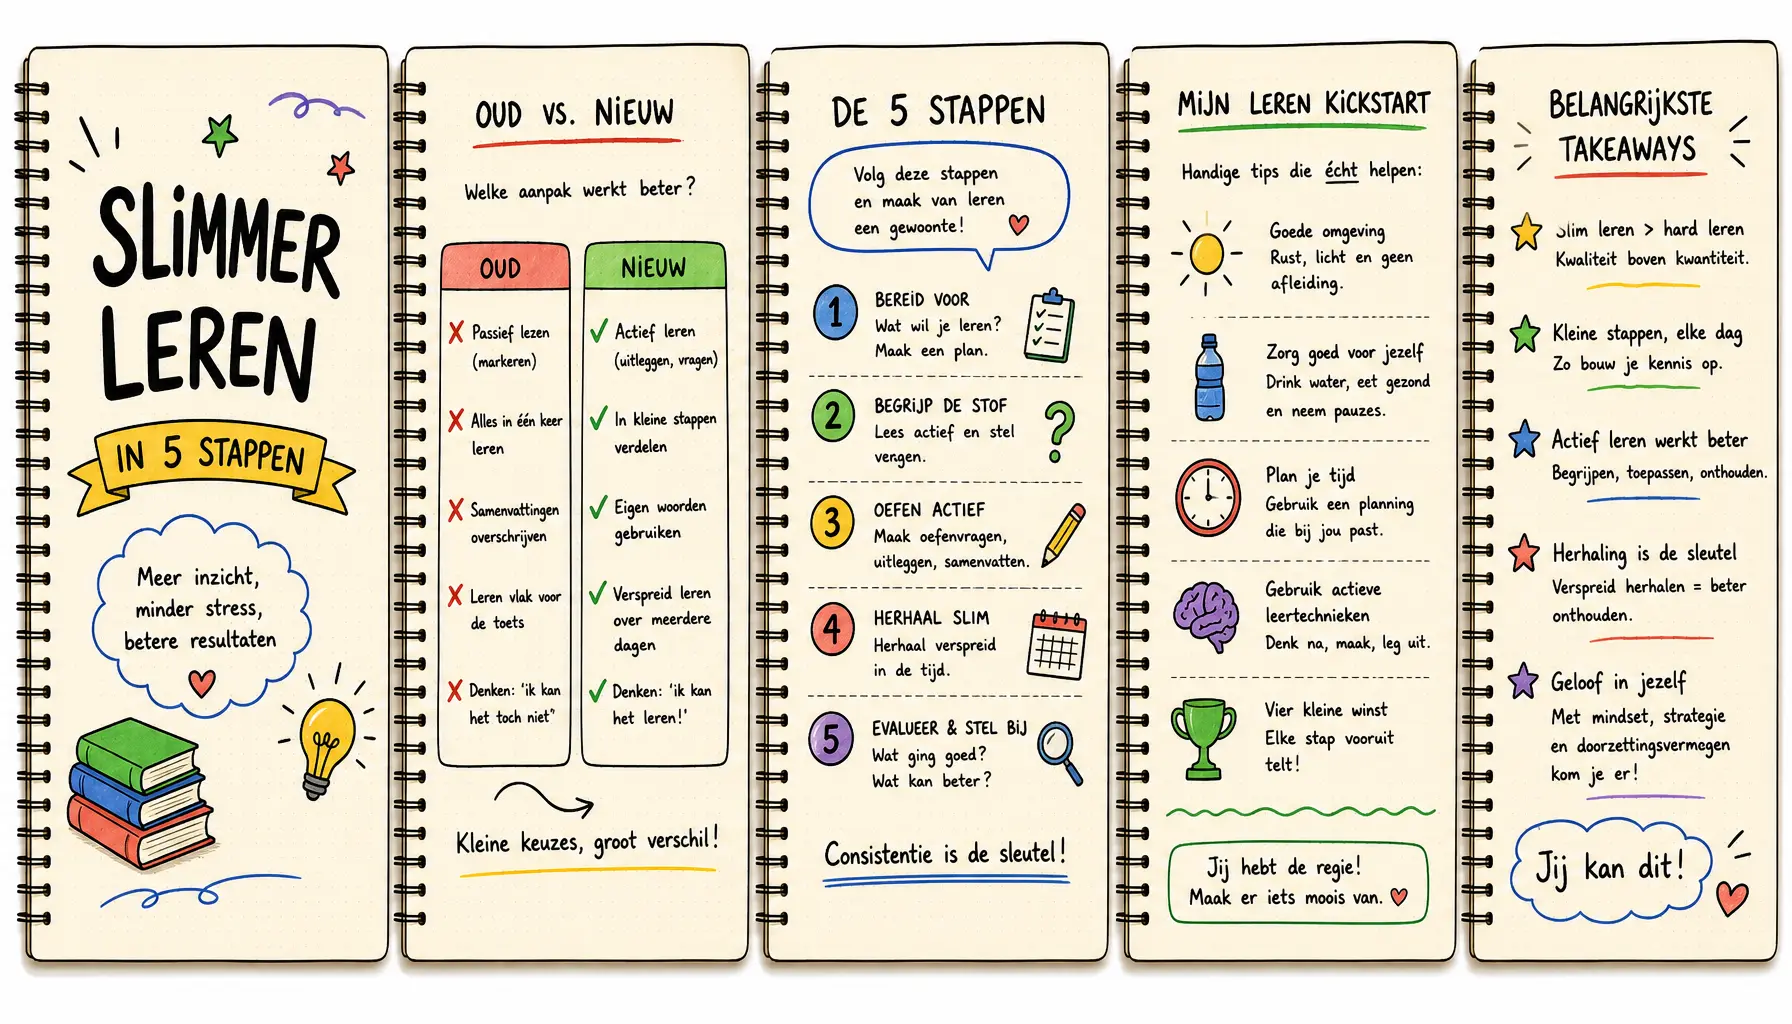 SLIMMER
LEREN
IN 5 STAPPEN
Meer inzicht,
minder stress,
betere resultaten
OUD vs. NIEUW
Welke aanpak werkt beter?
OUD
Passief lezen
(markeren)
Alles in één keer
leren
Samenvattingen
overschrijven
Leren vlak voor
de toets
Denken: 'ik kan
het toch niet'
NIEUW
Actief leren
(uitleggen, vragen)
In kleine stappen
verdelen
Eigen woorden
gebruiken
Verspreid leren
over meerdere
dagen
Denken: 'ik kan
het leren!'
Kleine keuzes, groot verschil!
DE 5 STAPPEN
Volg deze stappen
en maak van leren
een gewoonte!
1
BEREID VOOR
Wat wil je leren?
Maak een plan.
2
BEGRIJP DE STOF
Lees actief en stel
vengen.
?
3
OEFEN ACTIEF
Maak oefenvragen,
uitleggen, samenvatten.
4
HERHAAL SLIM
Herhaal verspreid
in de tijd.
5
EVALUEER & STEL BIJ
Wat ging goed?
Wat kan beter?
Consistentie is de sleutel!
MIJN LEREN KICKSTART
Handige tips die écht helpen:
Goede omgeving
Rust, licht en geen
afleiding.
Zorg goed voor jezelf
Drink water, eet gezond
en neem pauzes.
Plan je tijd
Gebruik een planning
die bij jou past.
Gebruik actieve
leertechnieken
Denk na, maak, leg uit.
Vier kleine winst
Elke stap vooruit
telt!
Jij hebt de regie!
Maak er iets moois van.
BELANGRIJKSTE
TAKEAWAYS
Slim leren > hard leren
Kwaliteit boven kwantiteit.
Kleine stappen, elke dag
Zo bouw je kennis op.
Actief leren werkt beter
Begrijpen, toepassen, onthouden.
Herhaling is de sleutel
Verspreid herhalen = beter
onthouden.
Geloof in jezelf
Met mindset, strategie
en doorzettingsvermegen
kom je er!
Jij kan dit!